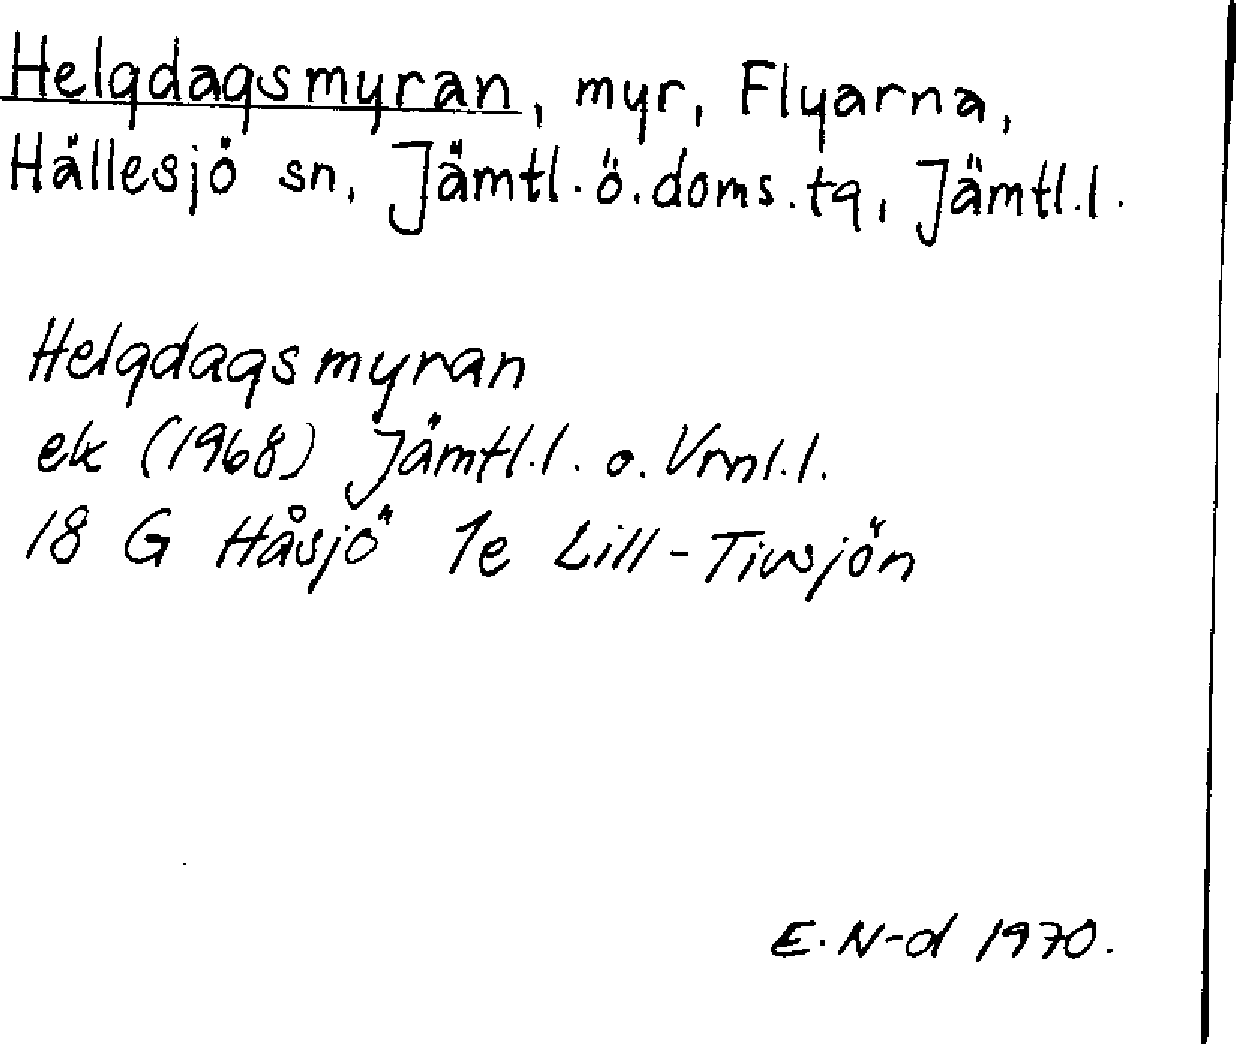 Helgdagsmyran, myr, Flyarna,
Hällesjö sn, Jämtl.ö.doms.tg, Jämtl.l.
Helgdagsmyran
ek (1968) Jämtl.l. o. Vrnl.l.
18 G Håsjö 1e Lill-Tivsjön
E.N-d 1970.